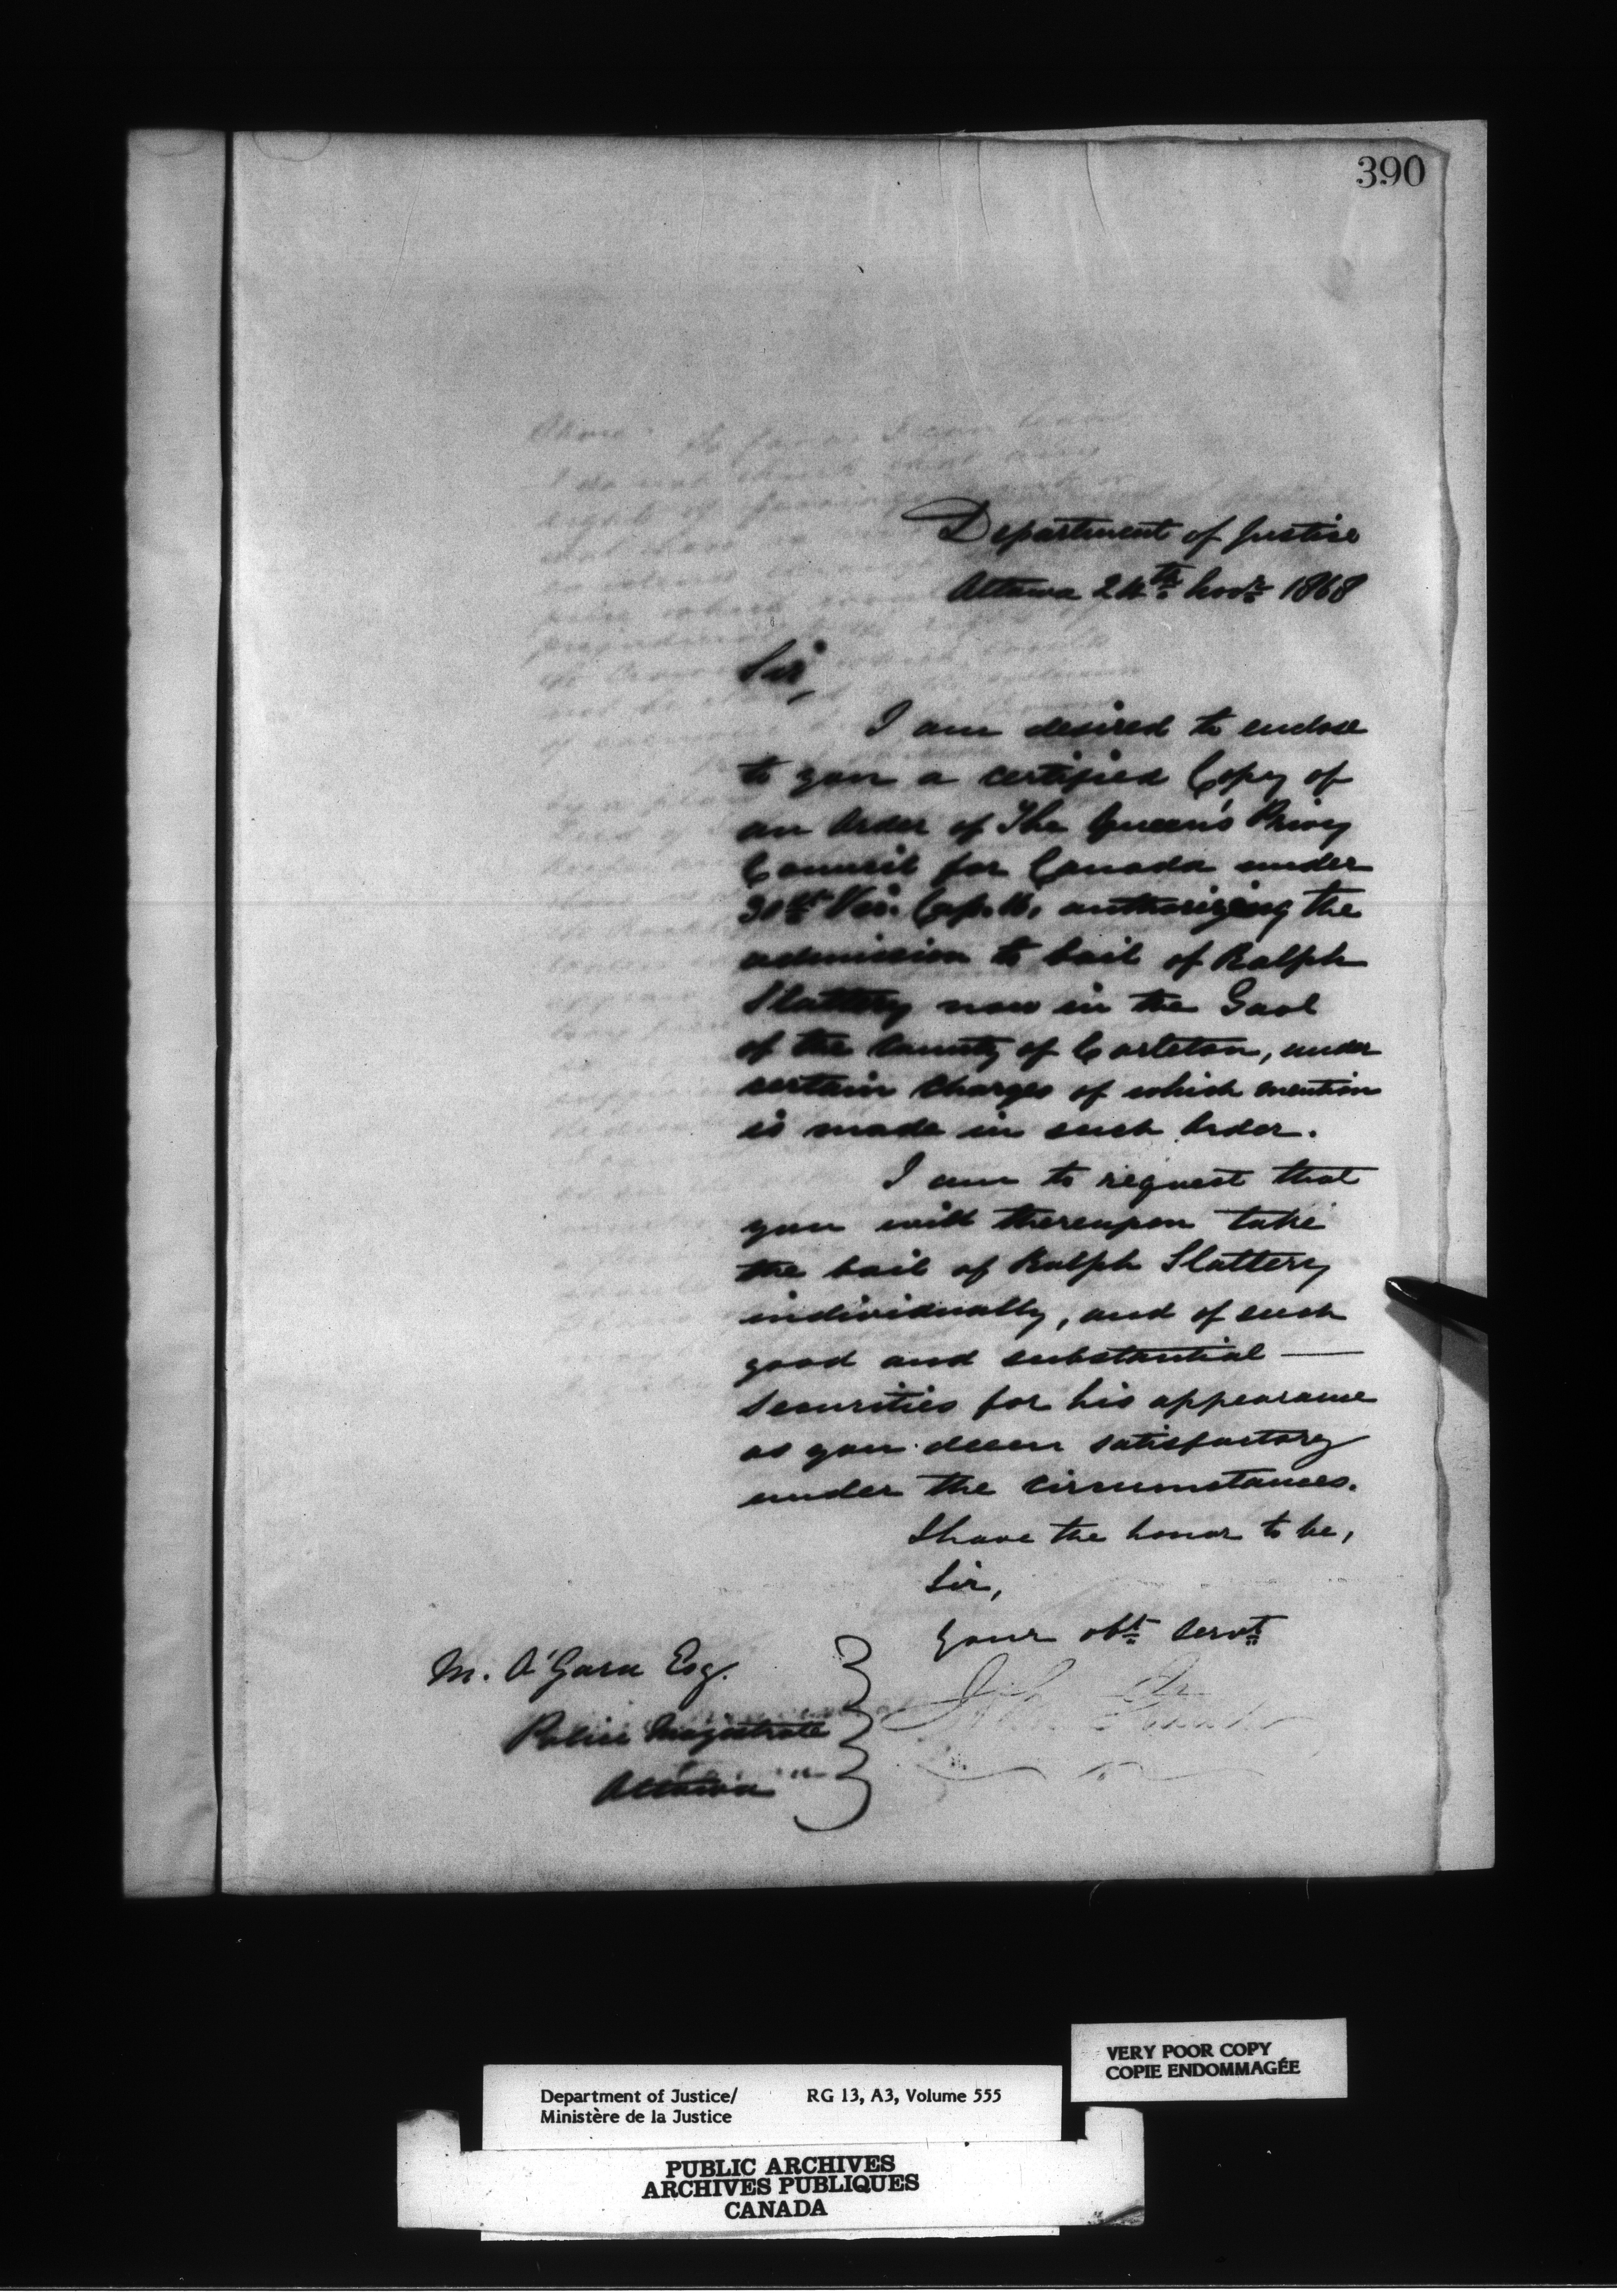 390
Department of Justice
Ottawa 24th Novr 1868
Sir,
I am desired to enclose
to you a certified Copy of
an Order of The Queen's Privy
Council for Canada under
31st Vic. Cap. 16, authorizing the
admission to bail of Ralph
Slattery now in the Gaol
of the County of Carleton, under
certain charges of which mention
is made in such Order.
I am to request that
you will thereupon take
the bail of Ralph Slattery
individually, and of such
good and substantial —
securities for his appearance
as you deem satisfactory
under the circumstances.
I have the honor to be,
Sir,
Your obt Servt
M. O'Gara Esq.
Police Magistrate
Ottawa
VERY POOR COPY
COPIE ENDOMMAGÉE
Department of Justice/ RG 13, A3, Volume 555
Ministère de la Justice
PUBLIC ARCHIVES
ARCHIVES PUBLIQUES
CANADA